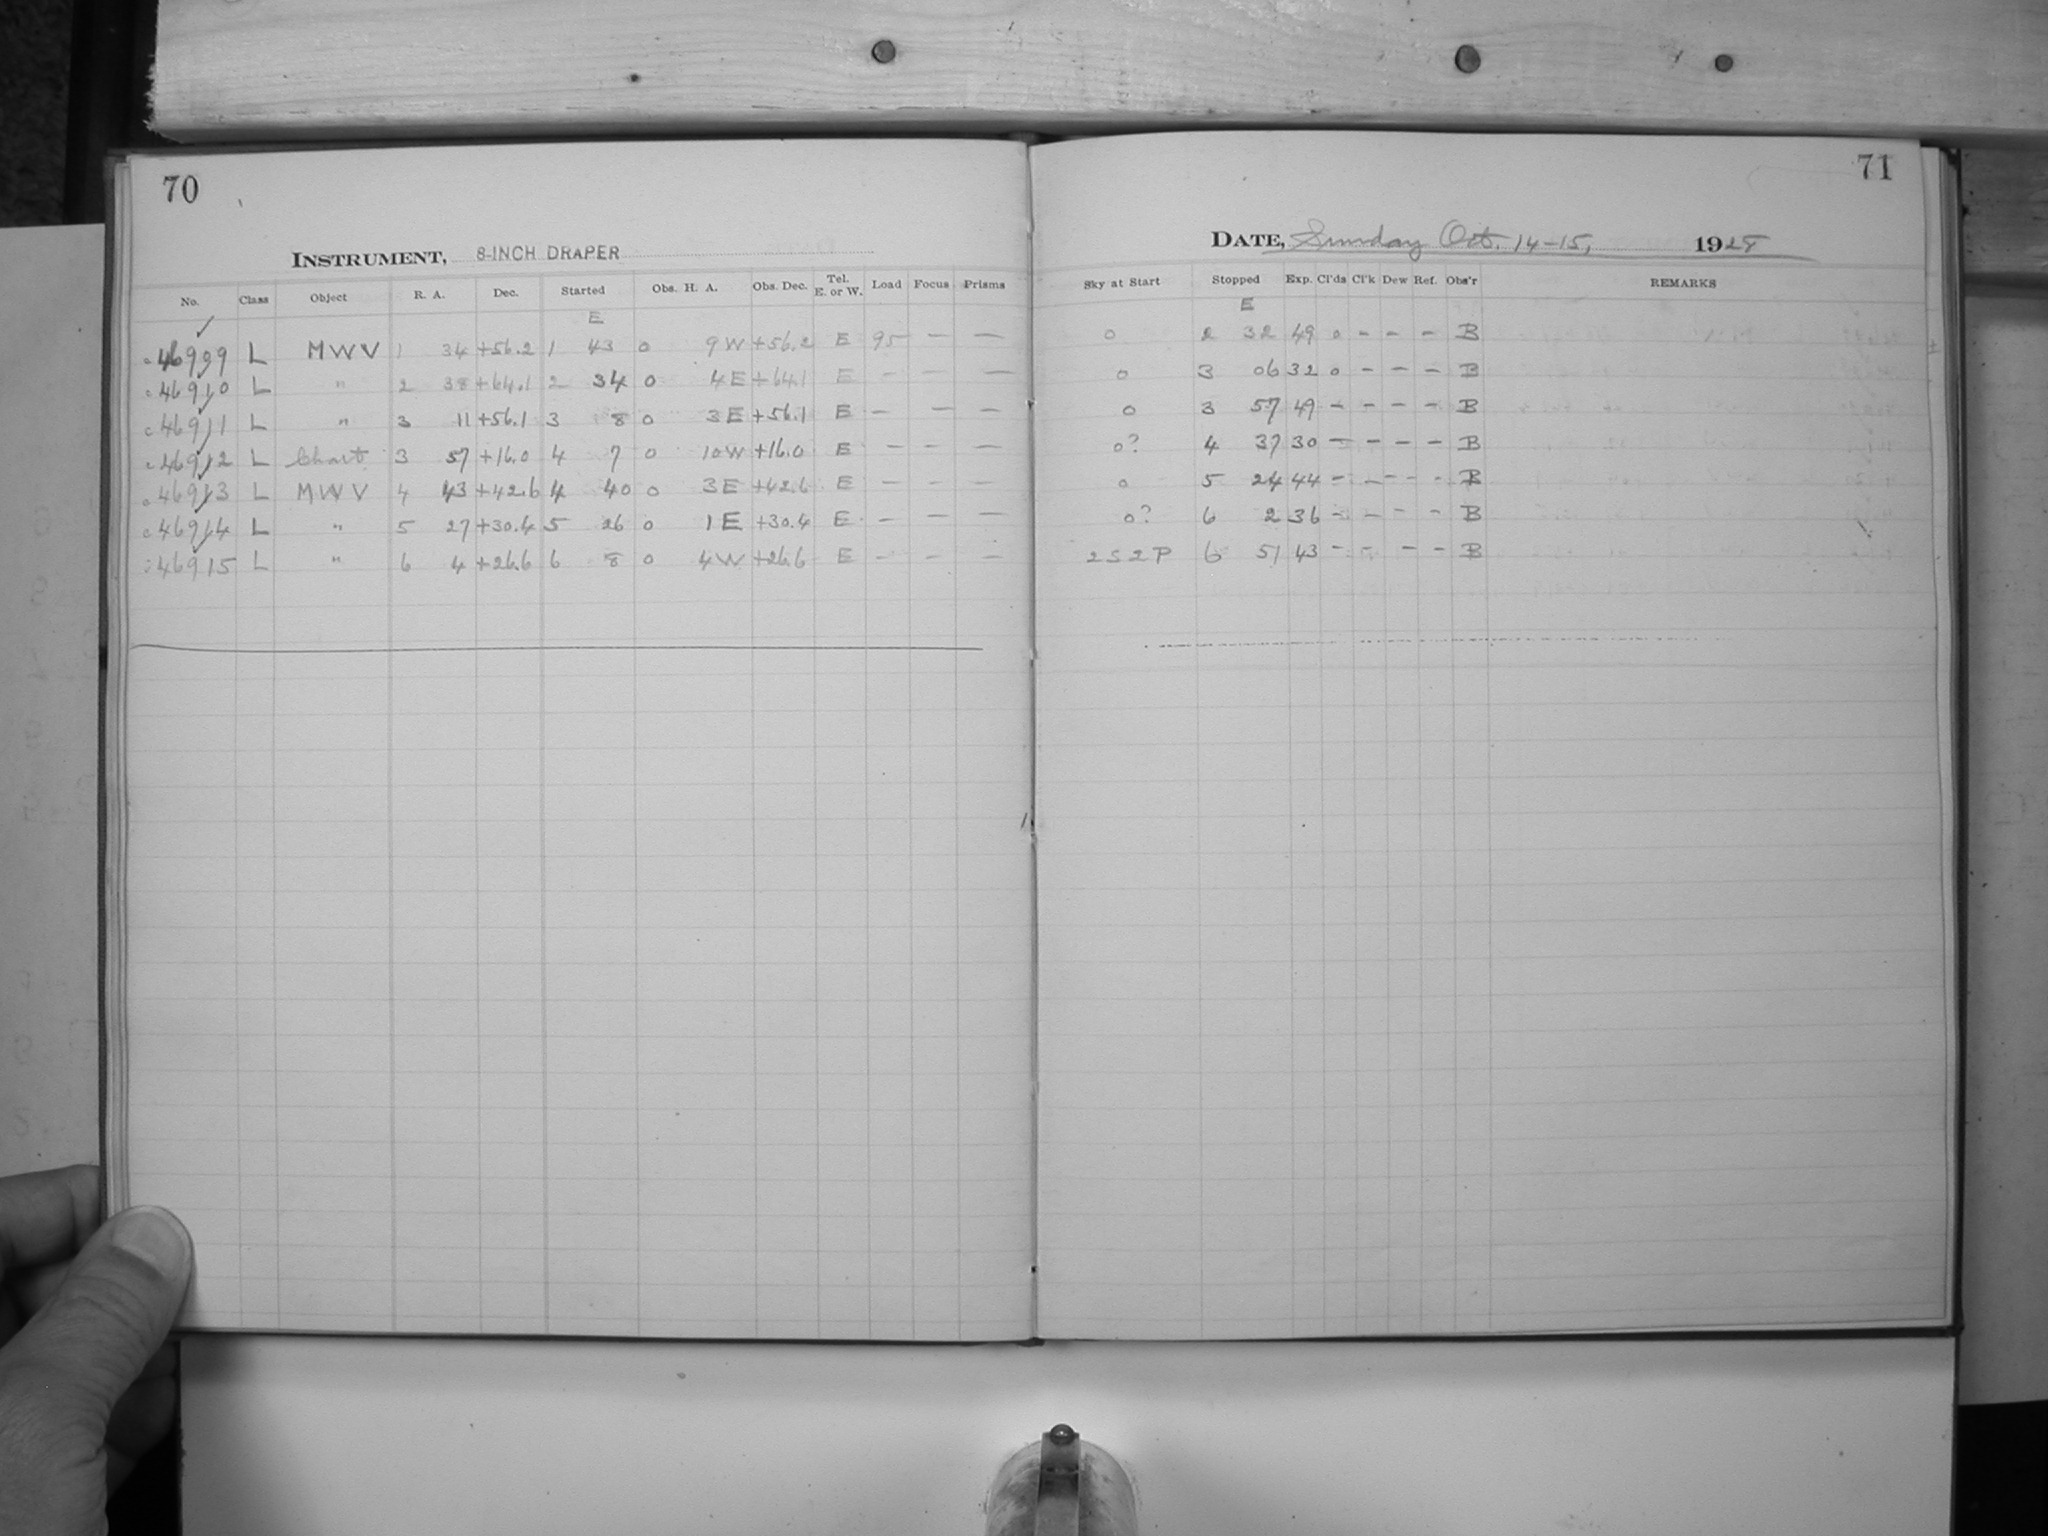 70
INSTRUMENT, 8-INCH DRAPER
No. Class Object R. A. Dec. Started Obs. H. A. Obs. Dec. Tel. E. or W. Load Focus Prisms
E
L MWV 1 34 +56.2 1 43 0 9 W +56.2 E 95 — —
c 46910 L " 2 38 +64.1 2 34 0 4 E +64.1 E — — —
c 46911 L " 3 11 +56.1 3 8 0 3 E +56.1 E — — —
c 46912 L Chart 3 57 +16.0 4 7 0 10 W +16.0 E — — —
c 46913 L MWV 4 43 +42.6 4 40 0 3 E +42.6 E — — —
c 46914 L " 5 27 +30.4 5 26 0 1 E +30.4 E — — —
c 46915 L " 6 4 +26.6 6 8 0 4 W +26.6 E — — —
71
DATE, Sunday Oct. 14-15, 1928
Sky at Start Stopped Exp. Cl'ds Cl'k Dew Ref. Obs'r REMARKS
E
0 2 32 49 0 - - - B
0 3 06 32 0 - - - B
0 3 57 49 - - - - B
0? 4 37 30 - - - - B
0 5 24 44 - - - - B
0? 6 2 36 - - - - B
2 S 2 P 6 51 43 - - - - B